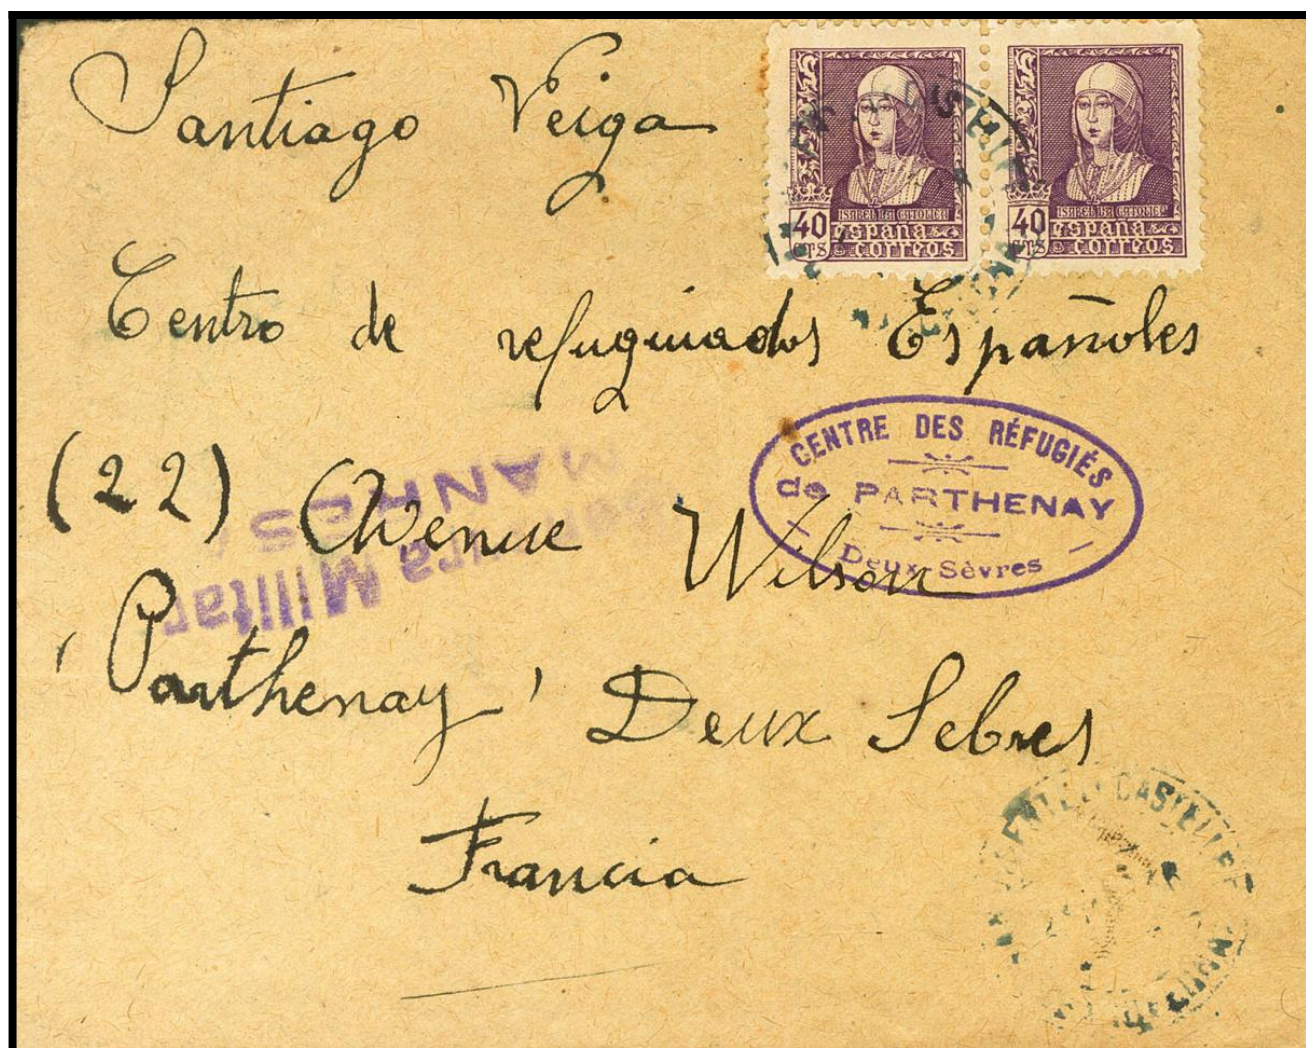 Santiago Veiga
40 CTS ISABEL LA CATOLICA ESPAÑA CORREOS
40 CTS ISABEL LA CATOLICA ESPAÑA CORREOS
Centro de refuguiados Españoles
CENTRE DES RÉFUGIÉS
de PARTHENAY
Deux-Sèvres
(22) Avenue Wilson
Militar
'Parthenay' Deux Sebres
Francia